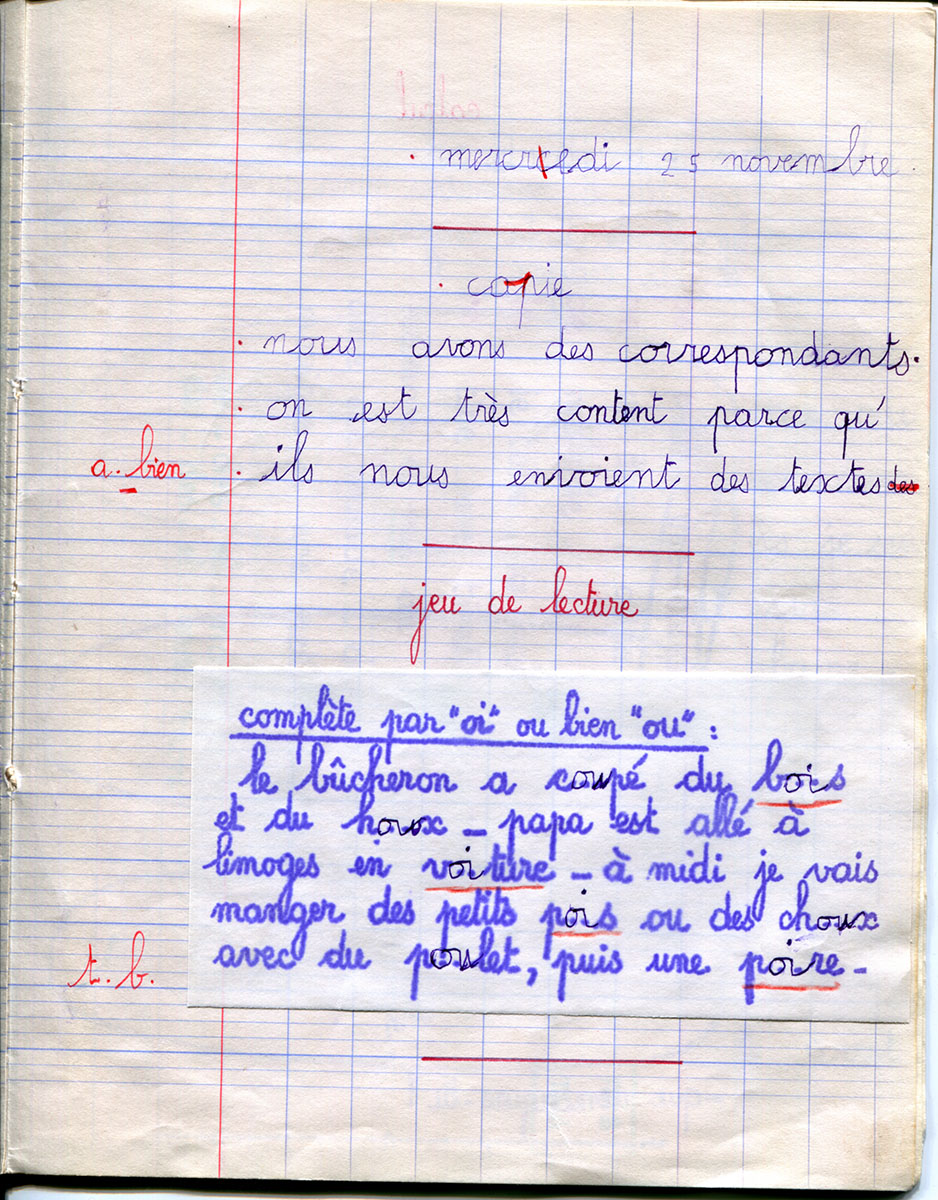 mercredi 25 novembre
copie
nous avons des correspondants.
on est très content parce qu'
a. bien ils nous envoient des textes des
jeu de lecture
complète par "oi" ou bien "ou" :
le bûcheron a coupé du bois
et du houx _ papa est allé à
limoges en voiture _ à midi je vais
manger des petits pois ou des choux
avec du poulet, puis une poire _
t. b.